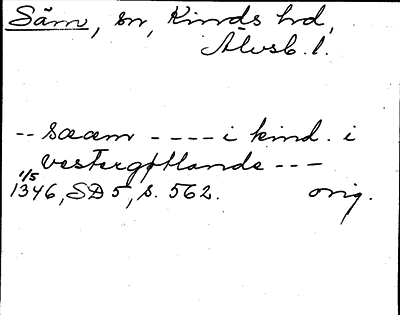 Säm, sn, Kinds hd,
Älvsb. l.
-- sææm ---- i kind. i
vestergøtlande ---
1/5
1346, SD 5, s. 562. orig.